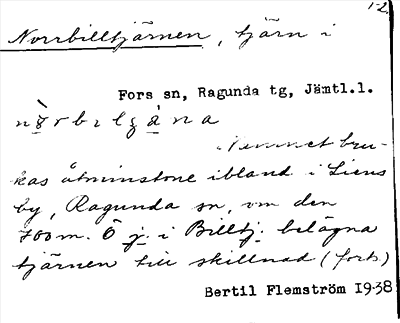 1-2.
Norrbilltjärnen, tjärn i
Fors sn, Ragunda tg, Jämtl.l.
Namnet bru-
kas åtminstone ibland i Liens
by, Ragunda sn, om den
700 m. Ö j. i Billtj. belägna
tjärnen till skillnad (forts.)
Bertil Flemström 1938